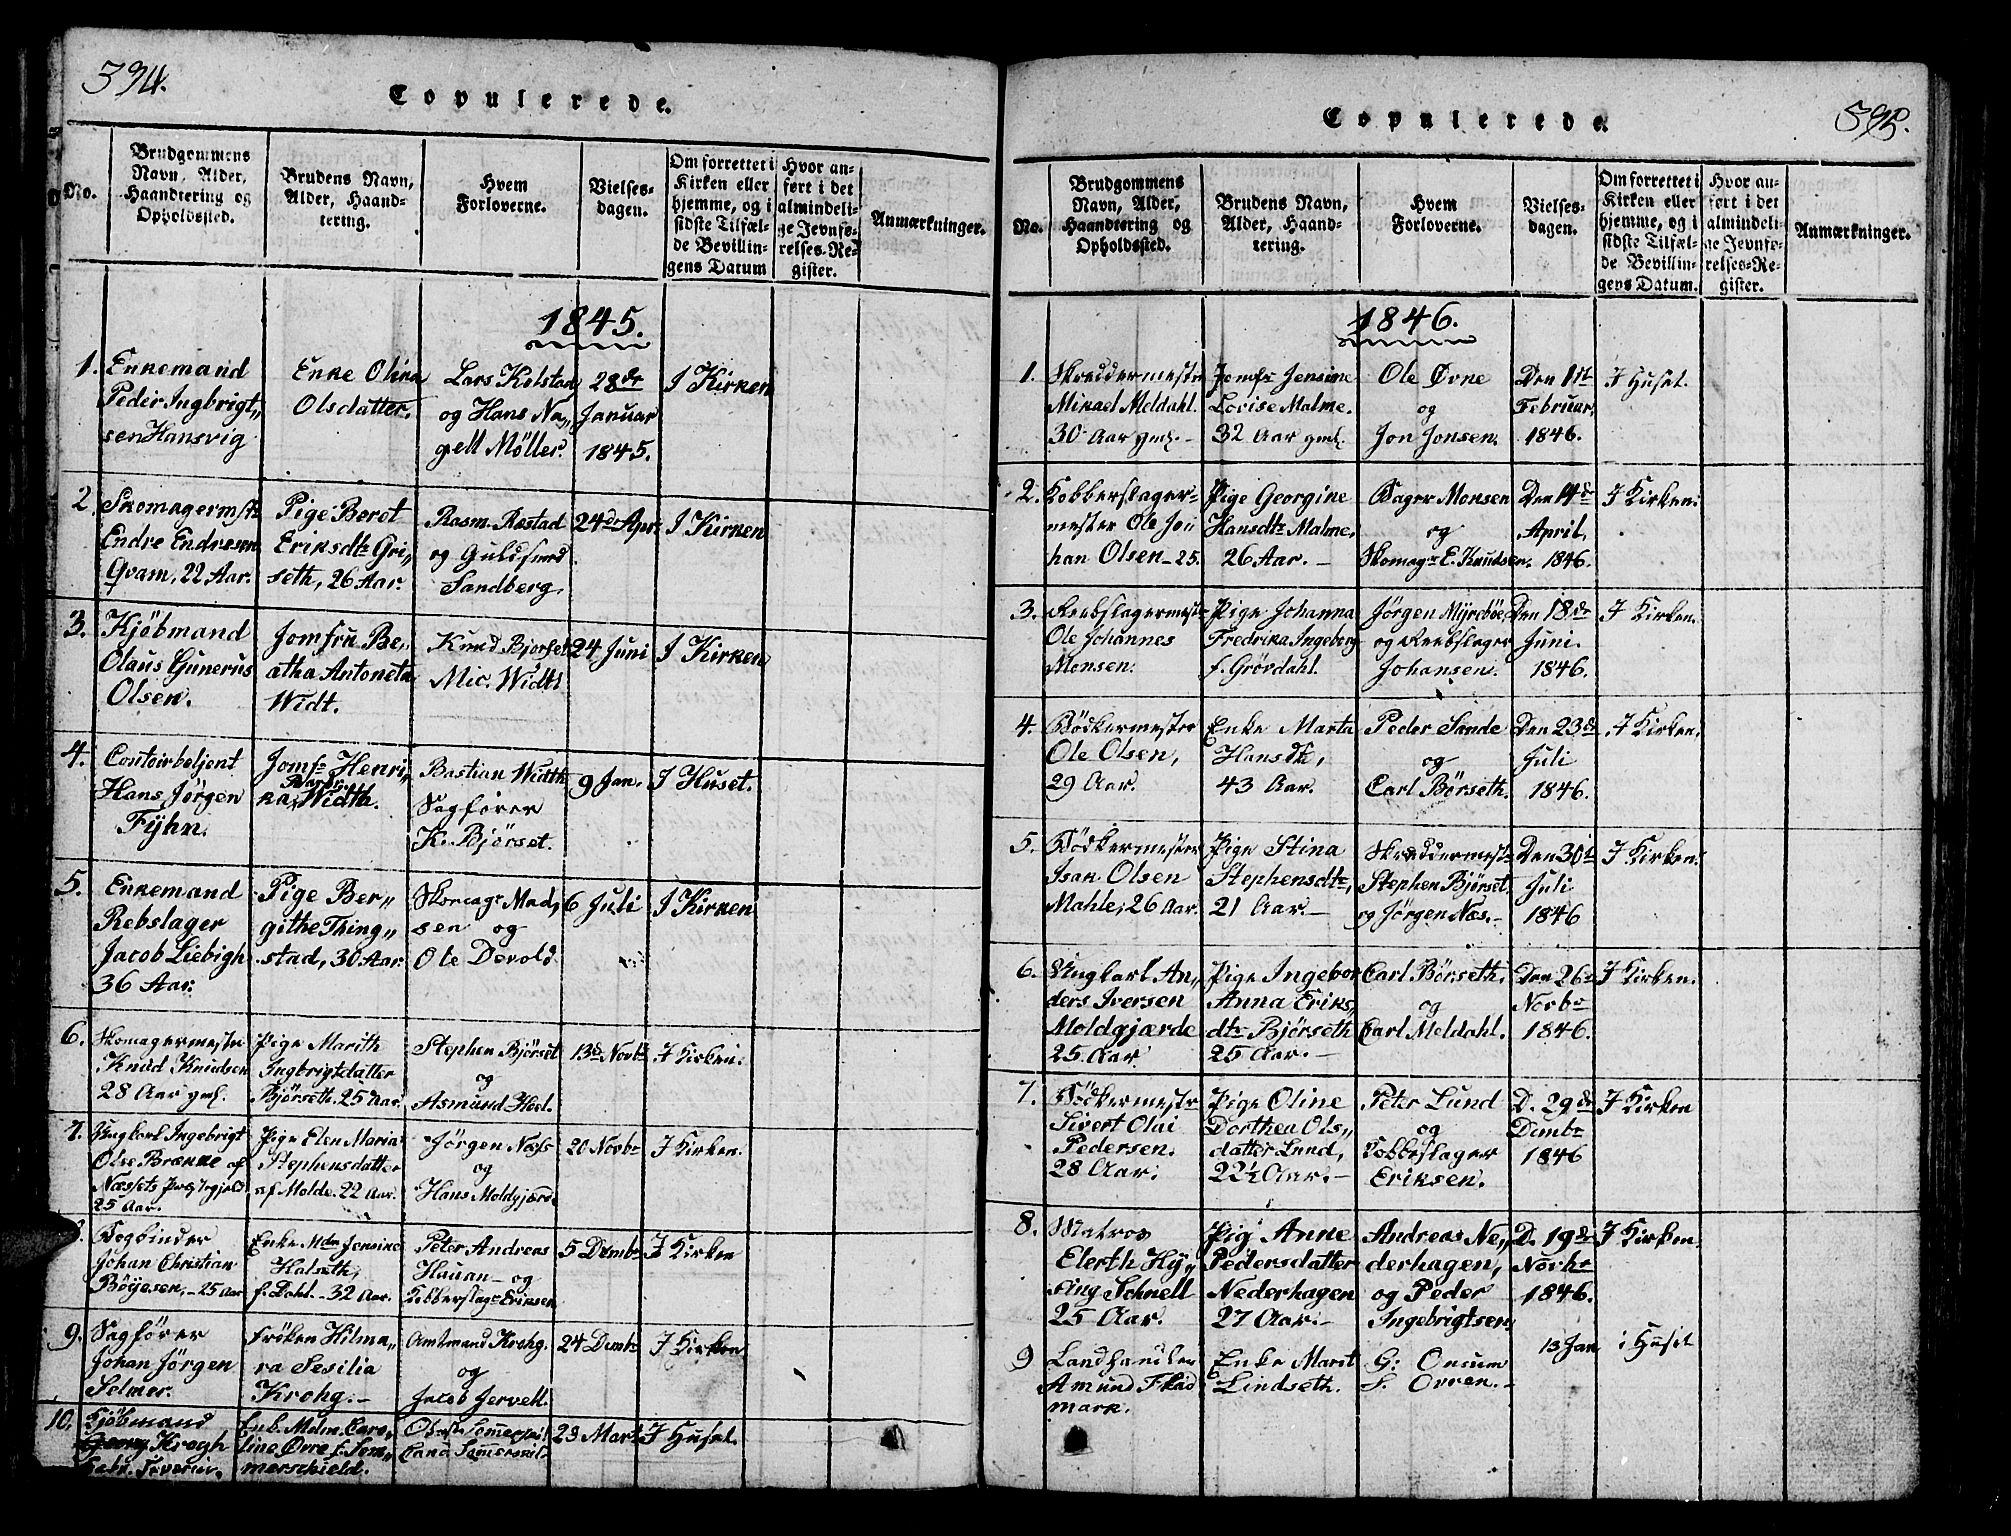 394.
Copulerede.
No.
Brudgommens
Navn, Alder,
Haandtering og
Opholdssted.
Brudens Navn,
Alder, Haand-
tering.
Hvem
Forloverne.
Vielses-
dagen.
Om forrettet i
Kirken eller
hjemme, og i
sidste Tilfæl-
de Bevillin-
gens Datum
Hvor an-
ført i det
almindeli-
ge Jevnfø-
relses-Re-
gister.
Anmærkninger.
1845.
1.
Enkemand
Peder Ingbrigt„
sen Hansvig
Enke Olina
Olsdatter.
Lars Kolstad
og Hans Na„
gell Møller.
28de
Januar
1845.
I Kirken
2
Skomagermstr
Endre Endresen
Qvam, 22 Aar.
Pige Beret
Eriksdtr Gri„
seth, 26 Aar.
Rasm. Røstad
og
Sandberg.
24de Apr.
I Kirken
3.
Kjöbmand
Olaus Gunerus
Olsen.
Jomfru Be„
atha Antoneta
Widt.
Knud Bjorset
Mic. Widt
24 Juni
I Kirken
4.
Contoirbetjent
Hans Jörgen
Fÿhn.
Jomfr Henri„
ka Width.
Bastian Width
Sagförer
K. Bjørset.
9 Jan.
I Huset.
5.
Enkemand
Rebslager
Jacob Liebigh
36 Aar.
Pige Ber„
githe Thing„
stad, 30 Aar.
Skomagr Mad„
sen og
Ole Devold
6 Juli
I Kirken
6.
Skomagermestr
Knud Knudsen
28 Aar gml.
Pige Marith
Ingbrigtsdatter
Bjørseth. 25 Aar.
Stephen Bjørset
og
Asmund Hoel.
13de Novbr
I Kirken.
7.
Ungkarl Ingebrigt
Olse Brænne af
Næssets Præstegjeld
25 Aar.
Pige Elen Maria
Stephensdatter
af Molde. 22 Aar.
Jörgen Næss
og
Hans Moldgjærd.
20 Novbr
I Kirken.
8.
Bogbinder
Johan Christian
Böyesen, 25 Aar
Enke Mdm Jensine
Halseth,
f. Dahl. 32 Aar.
Peter Andreas
Hauan og
Kobberslagr Eriksen
5 Dcmbr
I Kirken
9.
Sagförer
Johan Jörgen
Solmer.
Fröken Hilma„
ra Sesilia
Krohg.
Amtmand Krohg.
og
Jacob Jervell.
24 Dcmbr
I Kirken
10.
Kjöbmand
Georg Krogh
Enk. Mdm. Caro„
line Övre f. Som„
merschield.
29 Mart.
I Huset.
395.
Copulerede.
No.
Brudgommens
Navn, Alder,
Haandtering og
Opholdssted.
Brudens Navn,
Alder, Haand-
tering.
Hvem
Forloverne.
Vielses-
dagen.
Om forrettet i
Kirken eller
hjemme, og i
sidste Tilfæl-
de Bevillin-
gens Datum.
Hvor an-
ført i det
almindeli-
ge Jevnfø-
relses-Re-
gister.
Anmærkninger.
1846.
1.
Skreddermestr
Mikael Meldahl.
30 Aar gml.
Jomfr Jensine
Lovise Malme.
32 Aar gml.
Ole Øvne
og
Jon Jonsen.
Den 1ste
Februar
1846.
I Huset.
2.
Kobberslager-
mester Ole Jo„
han Olsen 25.
Pige Georgine
Hansdtr Malme,
26 Aar.
Bager Monsen
og
Skomagr E. Knudsen.
Den 14de
April,
1846.
I Kirken.
3.
Reebslagermestr
Ole Johannes
Monsen.
Pige Johanna
Fredrika Ingeberg
f. Grövdahl.
Jörgen Myreböe
og Reebslager
Johansen.
Den 18de
Juni.
1846.
I Kirken.
4.
Bödkermester
Ole Olsen,
29 Aar.
Enke Marta
Hansdtr,
43 Aar.
Peder Sande
og
Carl Börseth.
Den 23de
Juli
1846.
I Kirken.
5.
Bödkermester
Isak Olsen
Mahle, 26 Aar.
Pige Stina
Stephensdtr,
21 Aar.
Skreddermestr
Stephen Bjørset
og Jörgen Næs.
Den 30te
Juli
1846
I Kirken.
6.
Ungkarl An„
ders Iversen
Moldgjærde
25 Aar
Pige Ingebor
Anna Eriks„
dtr Bjørseth
25 Aar.
Carl Börseth.
og
Carl Meldahl.
Den 26de
Novbr
1846.
I Kirken.
7.
Bödkermestr
Sivert Olai
Pedersen.
28 Aar.
Pige Oline
Dorthea Ols„
datter Lund,
22½ Aar.
Peter Lund
og
Kobberslager
Eriksen.
D. 29de
Dcmbr
1846
I Kirken
8.
Matros
Elerth Hy„
ting Schnell
25 Aar.
Pig Anne
Pedersdatter
Nederhagen
27 Aar.
Andreas Ne„
derhagen,
og Peder
Ingebrigtsen.
D. 19de
Novbr
1846.
I Kirken.
9
Landhandler
Amund Flad
mark.
Enke Marit
Lindseth.
G: Onsum
S. Orren.
13 Jan
i Huset